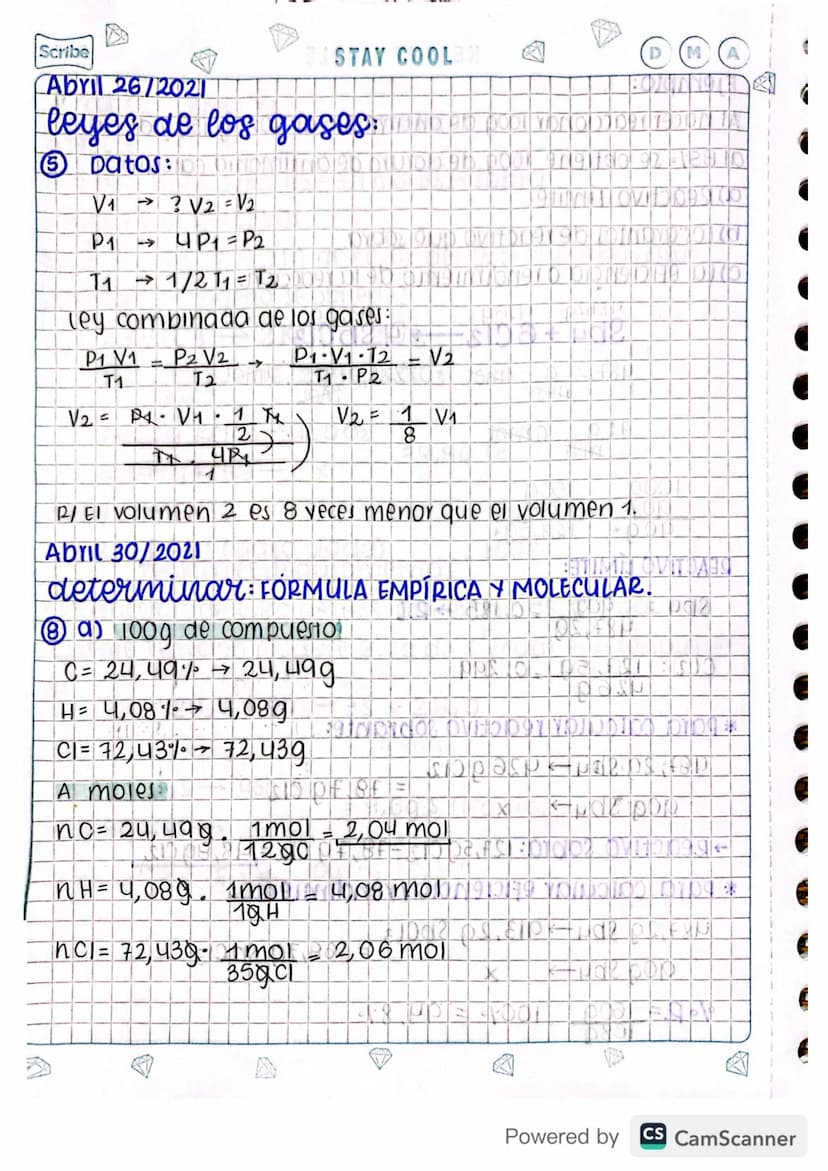 Scribe
STAY COOL
D M A
Abril 26/2021
leyes de los gases:
⑤ Datos:
V1 → ? V2 = V2
P1 → 4P1 = P2
T1 → 1/2 T1 = T2
ley combinada de los gases:
P1 V1 / T1 = P2 V2 / T2 → P1 · V1 · T2 / T1 · P2 = V2
V2 = P1 · V1 · 1/2 T1 / T1 · 4P1 / 1 V2 = 1/8 V1
R/ El volumen 2 es 8 veces menor que el volumen 1.
Abril 30/2021
determinar: FÓRMULA EMPÍRICA Y MOLECULAR.
⑧ a) 100g de compuesto
C= 24,49% → 24,49g
H= 4,08% → 4,08g
Cl= 72,43% → 72,43g
A moles:
nC= 24,49g. 1mol / 12gC = 2,04 mol
nH= 4,08g. 1mol / 1gH = 4,08 mol
nCl= 72,43g· 1mol / 35gCl = 2,06 mol
Powered by CS CamScanner